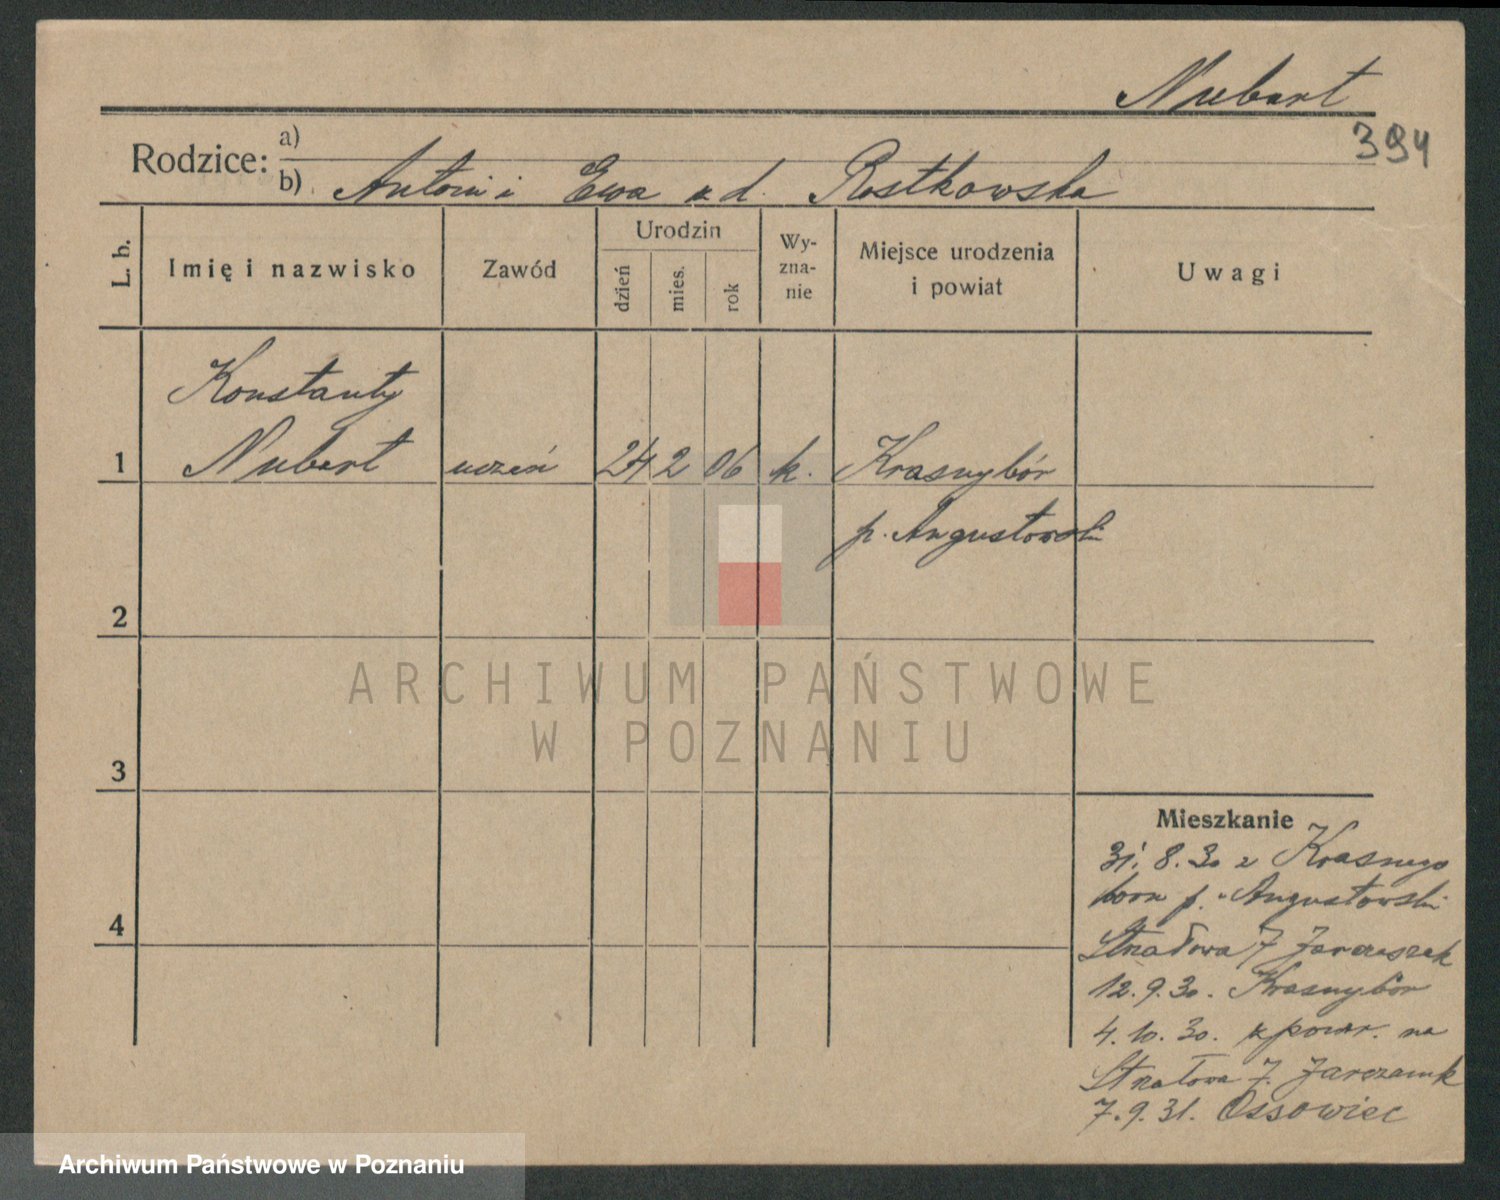 Nubert
394
Rodzice: a)
b) Antoni i Ewa z d. Rostkowska
L. b.
Imię i nazwisko
Zawód
Urodzin
dzień
mies.
rok
Wy-
zna-
nie
Miejsce urodzenia
i powiat
Uwagi
Konstanty
1 Nubert uczeń 24 2 06 k. Krasnybór
p. Augustowski
2
3
4
Mieszkanie
31. 8. 30 z Krasnego
boru p. Augustowski
Strzałowa 7
12. 9. 30. Krasnybór
4. 10. 30. z powr. na
Strzałowa 7.
7. 9. 31. Ossowiec
ARCHIWUM PAŃSTWOWE
W POZNANIU
Archiwum Państwowe w Poznaniu